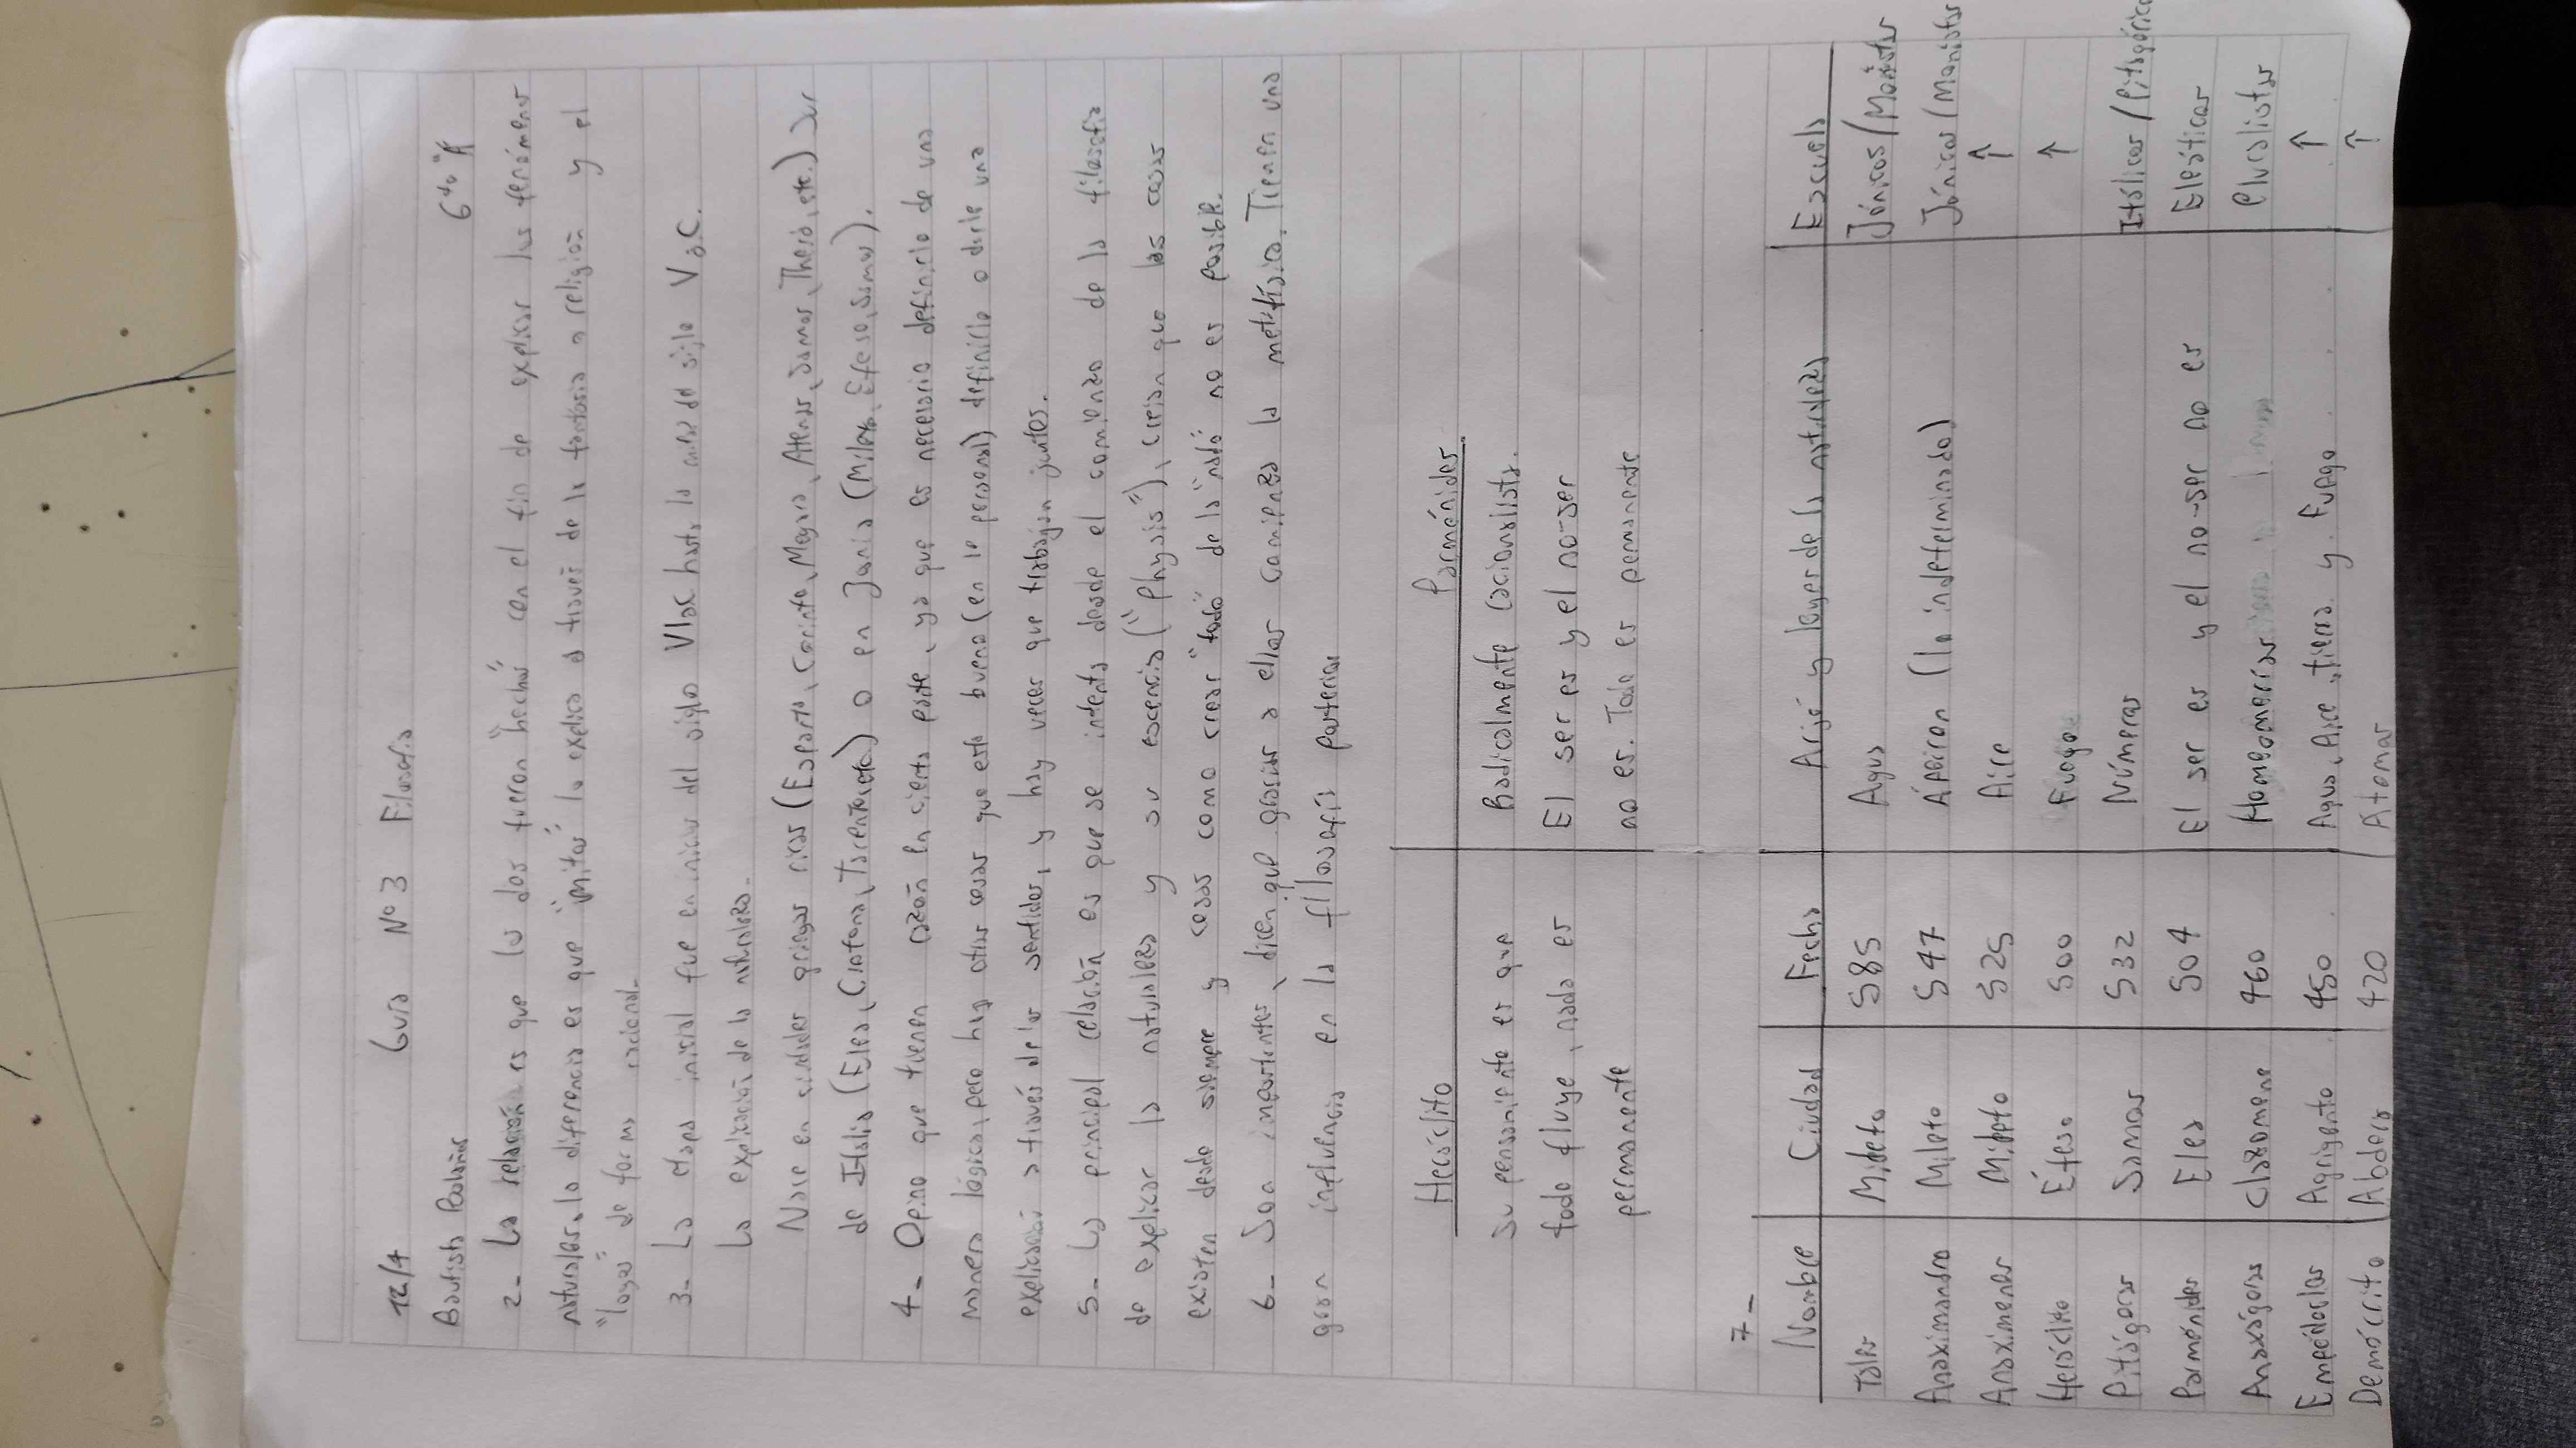 12/4 Guia N° 3 Filosofia
Bautista 6to "A"
2- La relación es que lo dos fueron "hechos" con el fin de explicar los fenómenos
naturales, la diferencia es que "mitos" lo explica a través de la fantasia o religión y el
"logos" de forma racional.
3- La etapa inicial fue en inicios del siglo VI aC hasta la mitad del siglo V a.C.
La explicación de la naturaleza.
Nace en ciudades griegas ricas (Esparta, Corinto, Megara, Atenas, Samos, Thera, etc.) Sur
de Italia (Elea, Crotona, Tarento, etc) o en Jonia (Mileto, Efeso, Samos).
4- Opino que tienen razón en cierta parte, ya que es necesario definirlo de una
manera lógica, pero hay otras cosas que esta bueno (en lo personal) definirlo o darle una
explicación a través de los sentidos, y hay veces que trabajan juntos.
5- La principal relación es que se intenta desde el comienzo de la filosofia
de explicar la naturaleza y su escencia ("Physis"), creian que las cosas
existen desde siempre y cosas como crear "todo" de la "nada" no es posible.
6- Son importantes, dicen que gracias a ellos comienza la metafísica. Tienen una
gran influencia en la filosofía posterior
Heráclito Parménides
Su pensamiento es que Radicalmente racionalista.
todo fluye, nada es El ser es y el no-ser
permanente no es. Todo es permanente
7-
Nombre Ciudad Fecha Arjé y leyes de la naturaleza Escuela
Tales Mileto 585 Agua Jónicos/Monistas
Anaximandro Mileto 547 Ápeiron (lo indeterminado) Jónicos/Monistas
Anaxímenes Mileto 525 Aire ↑
Heráclito Éfeso 500 Fuego ↑
Pitágoras Samos 532 Números Itálicos/Pitagóricos
Parménides Elea 504 El ser es y el no-ser no es Eleáticos
Anaxágoras Clazomene 460 Homeomerías Pluralistas
Empédocles Agrigento 450 Agua, Aire, tierra y fuego ↑
Demócrito Abdera 420 Atomos ↑